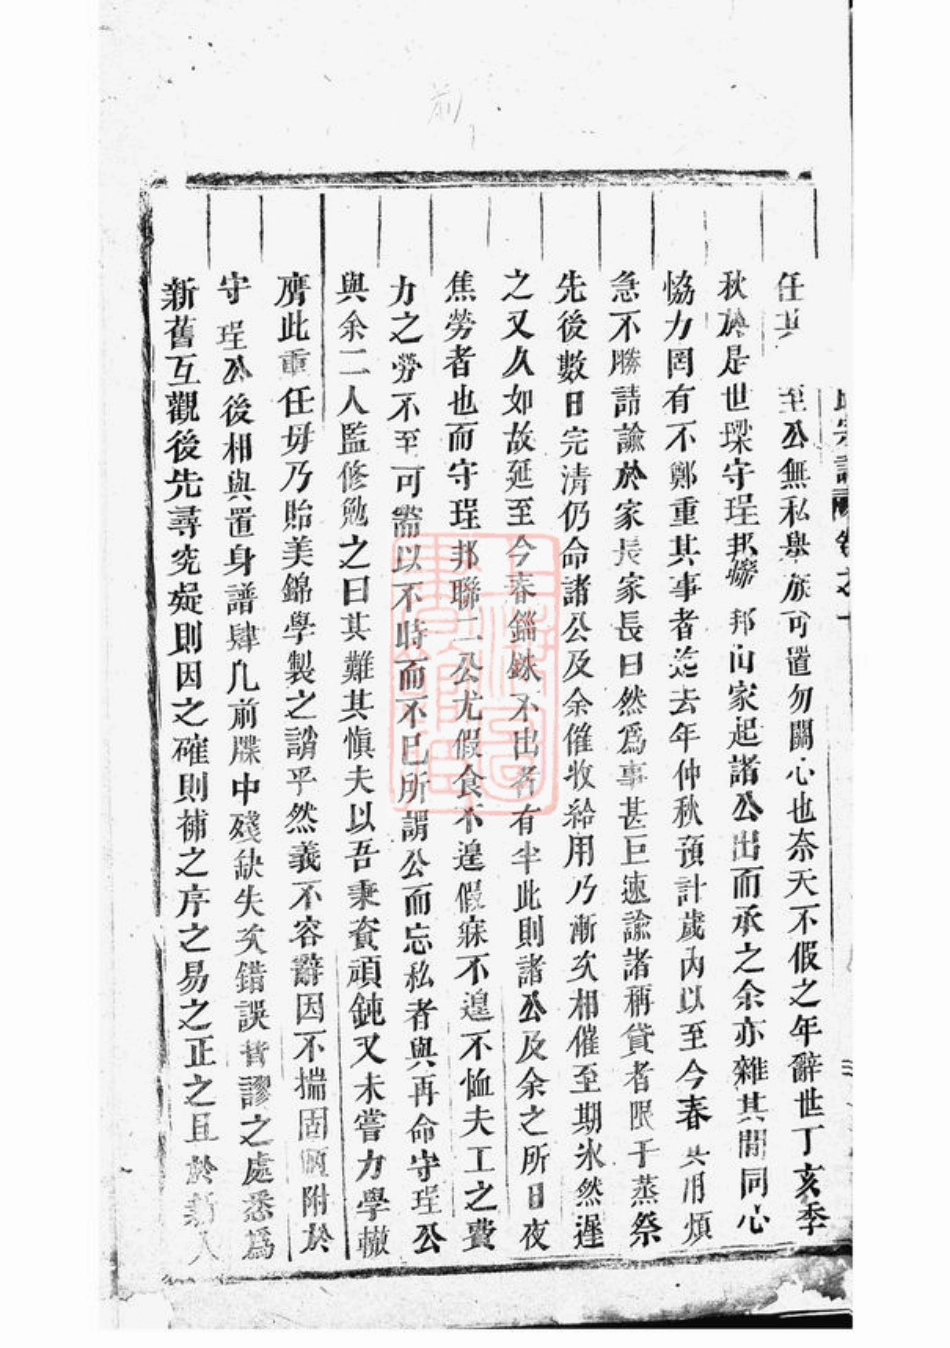 宗譜 卷之一
任其 至公無私舉族可置勿關心也奈天不假之年辭世丁亥季
秋於是世璆守珵邦 邦向家起諸公出而承之余亦雜其間同心
恊力罔有不鄭重其事者迄去年仲秋預計歲內以至今春 共用煩
急不勝詰諭於家長家長曰然爲事甚巨速諭諸稱貸者限于蒸祭
先後數日完清仍命諸公及余催收給用乃漸次相催至期氷然遲
之又久如故延至今春錙銖不出者有半此則諸公及余之所日夜
焦勞者也而守珵邦聯二公尤假食不遑假寐不遑不恤夫工之費
力之勞不至可 以不時而不已所謂公而忘私者與再命守珵公
與余二人監修勉之曰其難其慎夫以吾秉資頑鈍又未嘗力學輙
膺此重任毋乃貽美錦學製之誚乎然義不容辭因不揣固陋附於
守珵公後相與置身譜肆几前牒中殘缺失次錯誤 謬之處悉爲
新舊互觀後先尋究疑則因之確則補之序之易之正之且於新入